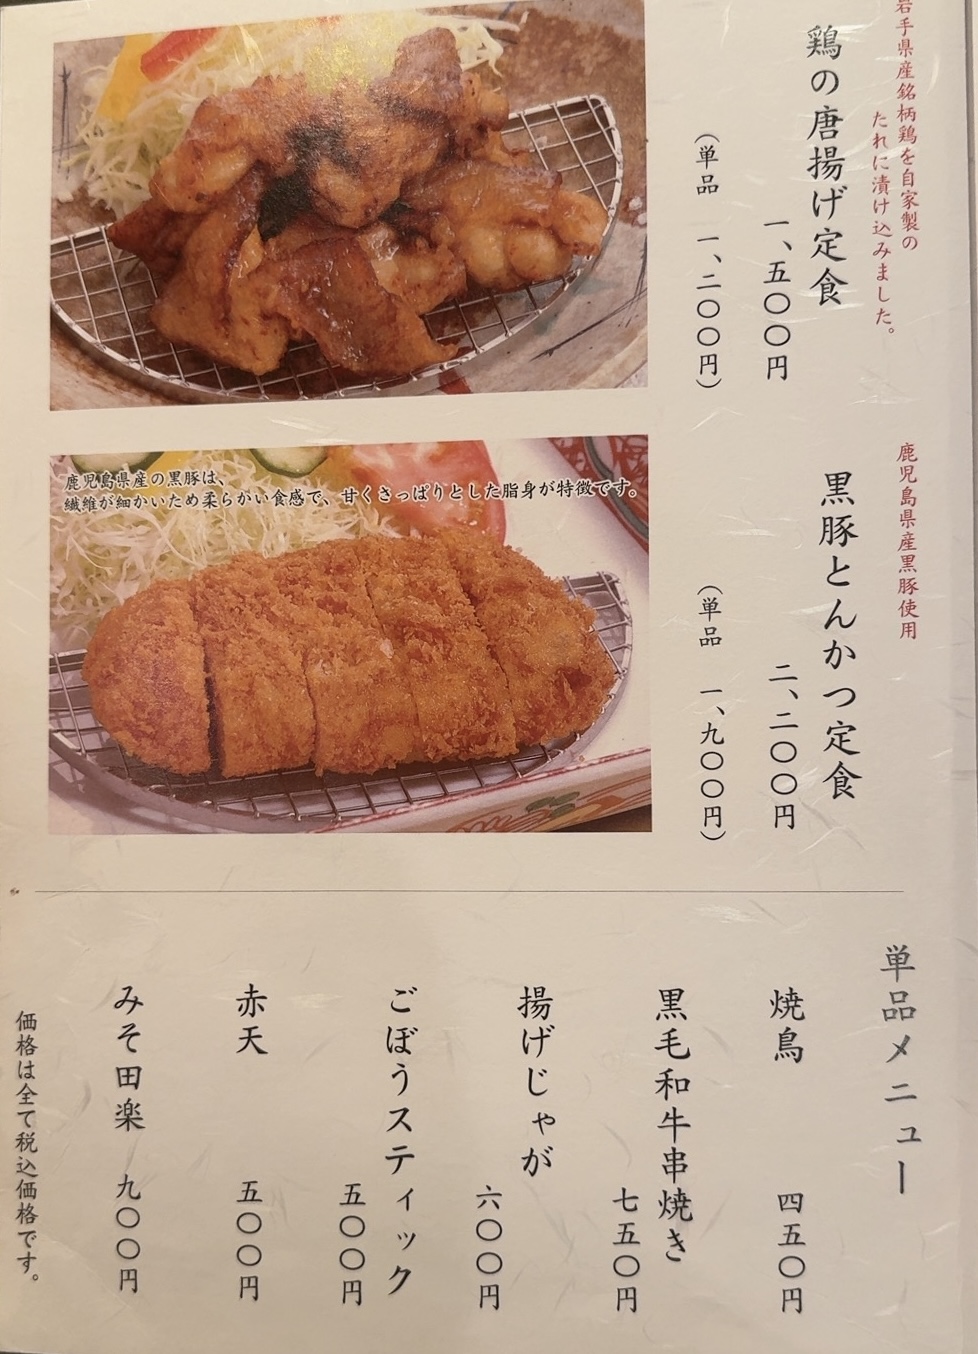 岩手県産銘柄鶏を自家製の
たれに漬け込みました。
鶏の唐揚げ定食
一、五〇〇円
（単品　一、二〇〇円）
鹿児島県産黒豚使用
黒豚とんかつ定食
二、二〇〇円
（単品　一、九〇〇円）
鹿児島県産の黒豚は、
繊維が細かいため柔らがい食感で、甘くさっぱりとした脂身が特徴です。
単品メニュー
焼鳥　四五〇円
黒毛和牛串焼き
七五〇円
揚げじゃが
六〇〇円
ごぼうスティック
五〇〇円
赤天　五〇〇円
みそ田楽　九〇〇円
価格は全て税込価格です。